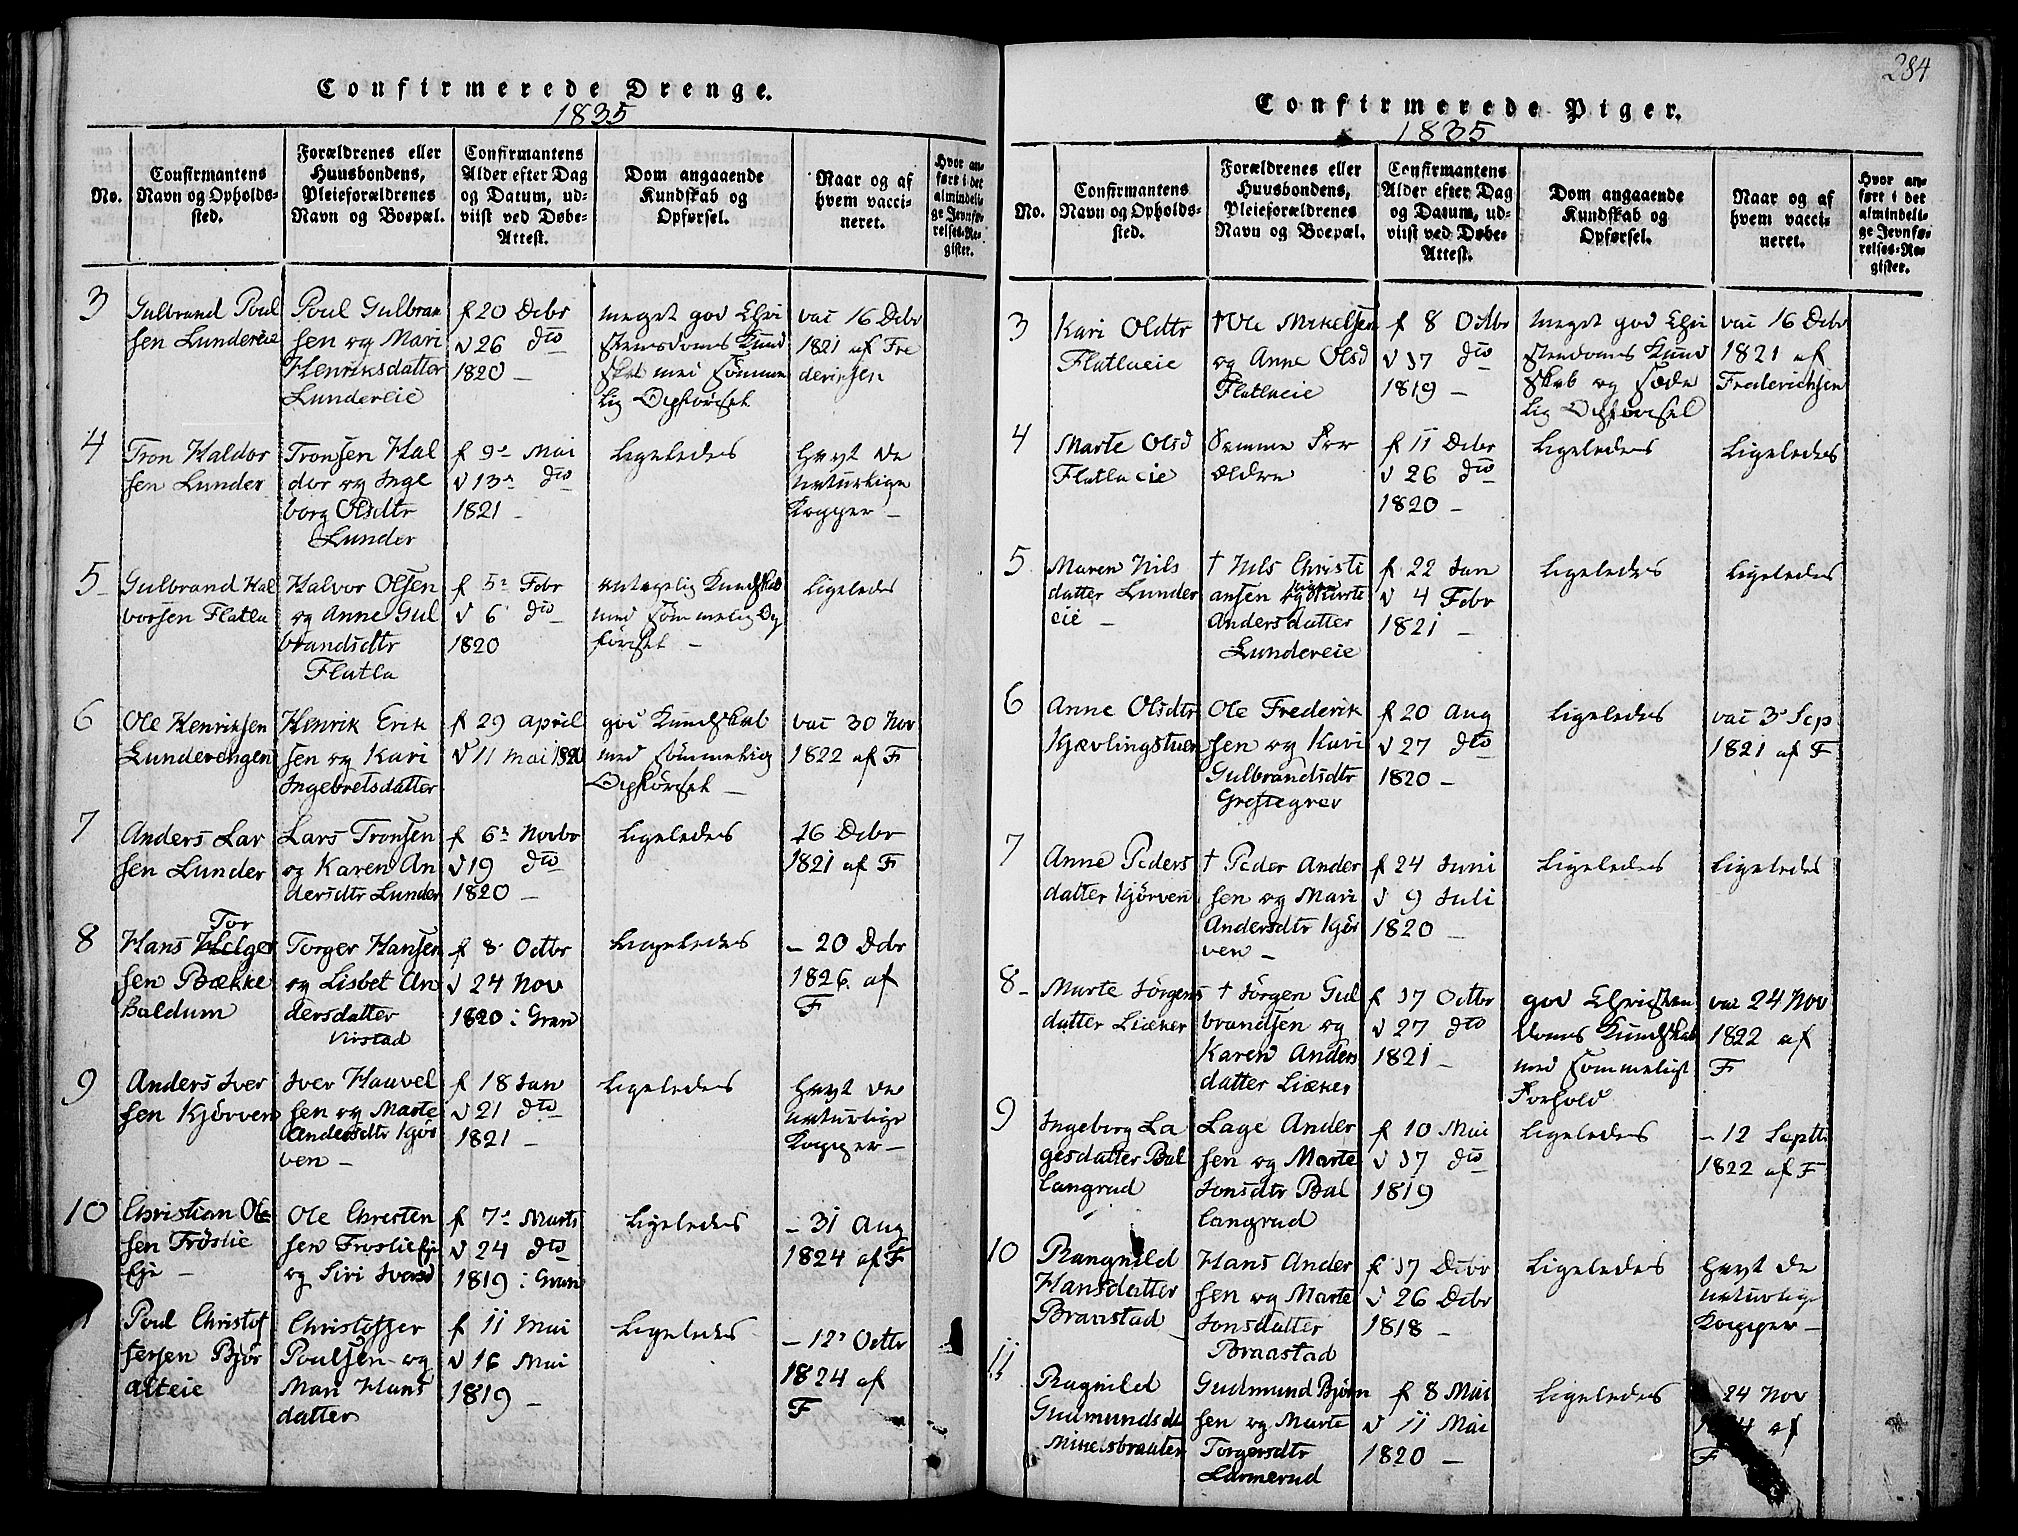 Confirmerede Drenge.
1835
No.
Confirmantens
Navn og Opholds-
sted.
Forældrenes eller
Huusbondens,
Pleieforældrenes
Navn og Boepæl.
Confirmantens
Alder efter Dag
og Datum, ud-
viist ved Døbe-
Attest.
Dom angaaende
Kundskab og
Opførsel.
Naar og af
hvem vacci-
neret.
Hvor an-
ført i det
almindeli-
ge Jevnfø-
relses-Re-
gister.
3
Gulbrand Poul
sen Lundereie
Poul Gulbran
sen og Mari
Henriksdatter
Lundereie
f 20 Debr
d 26 dto
1820 –
meget god Chri
stensdoms Kund
skab med sømme
lig Opførsel
vac 16 Debr
1821 af Fre
derichsen
4
Tron Haldor
sen Lunder
Tronsen Hal
dor og Inge
borg Olsdtr
Lunder
f 9de Mai
d 13de dto
1821 –
Ligeledes
havt de
naturlige
Kopper –
5
Gulbrand Hal
vorsen Flatla
Halvor Olsen
og Anne Gul
brandsdtr
Flatla
f 5te Febr
d 6 dto
1820
antagelig Kundskab
med sømmelig Op
førsel –
Ligeledes
6
Ole Henriksen
Lunderengen
Henrik Erik
sen og Kari
Ingebretsdatter
f 29 april
d 11 mai 1820
god Kundskab
med sømmelig
Opførsel –
vac 30 Nov
1822 af F
7
Anders Lar
sen Lunder
Lars Tronsen
og Karen An
dersdtr Lunder
f 6te Novbr
d 19 dto
1820 –
Ligeledes
16 Debr
1821 af F
8
Tor
Hans Helger
sen Bække
haldum
Torger Hansen
og Lisbet An
dersdatter
Virstad
f 8 Octbr
d 24 Nov
1820 : Gran
Ligeledes
– 20 Debr
1826 af
F
9
Anders Iver
sen Kjörven
Iver Hauvel
sen og Marte
Andersdtr Kjör
ven –
f 18 Jan
d 21 dto
1821 –
Ligeledes
havt de
naturlige
Kopper –
10
Christian Ole
sen Fröslie
Eje –
Ole Christen
sen Froslie Eje
og Siri Iversd
f 7de Marts
d 24 dto
1819 : Gran
Ligeledes
– 31 Aug
1824 af F
Poul Christof
fersen Bjør
alteie
Christoffer
Poulsen og
Mari Hans
datter
f 11 Mai
d 16 Mai
1819 –
Ligeledes
– 12te Octbr
1824 af
F
284
Confirmerede Piger.
1835
No.
Confirmantens
Navn og Opholds-
sted.
Forældrenes eller
Huusbondens,
Pleieforældrenes
Navn og Boepæl.
Confirmantens
Alder efter Dag
og Datum, ud-
viist ved Døbe-
Attest.
Dom angaaende
Kundskab og
Opførsel.
Naar og af
hvem vacci-
neret.
Hvor an-
ført i det
almindeli-
ge Jevnfø-
relses-Re-
gister.
3
Kari Oldtr
Flatlaeie
† Ole Mikelsen
og Anne Olsd
Flatlaeie
f 8 Octbr
d 17 dto
1819 –
meget god Chri
stendoms Kund
skab og sæde
lig Opførsel
vac 16 Debr
1821 af
Frederichsen
4
Marte Olsd
Flatlaeie
Samme For
ældre
f 11 Debr
d 26 dto
1820 –
Ligeledes
Ligeledes
5
Maren Nils
datter Lunder
eie –
† Nils Christi
ansen og Marte
Andersdatter
Lundereie
f 22 Jan
d 4 Febr
1821 –
Ligeledes
Ligeledes
6
Anne Olsdtr
Kjævlingstuen
Ole Frederik
sen og Kari
Gulbrandsdtr
Grøstegrev
f 20 Aug
d 27 dto
1820 –
Ligeledes
vac 3 Sep
1821 af F
7
Anne Peders
datter Kjörven
† Peder Ander
sen og Mari
Andersdtr Kjör
ven –
f 24 Juni
d 9 Juli
1820 –
Ligeledes
Ligeledes
8
Marte Jörgens
datter Liæker
† Jörgen Gul
brandsen og
Karen Anders
datter Liæker
f 17 Octbr
d 27 dto
1821 –
god Christen
doms Kundskab
med sømmeligt
Forhold
vac 24 Nov
1822 af
F
9
Ingeborg La
gesdatter Bal
langrud
Lage Ander
sen og Marte
Jonsdtr Bal
langrud
f 10 Mai
d 17 dto
1819
Ligeledes
– 12 Septb
1822 af F
10
Rangnild
Hansdatter
Branstad
Hans Ander
sen og Marte
Jonsdatter
Braastad
f 17 Debr
d 26 Debr
1818 –
Ligeledes
havt de
naturlige
Kopper –
11
Ragnild
Gudmundsdt
Mikelsbraaten
Gudmund Bjørn
sen og Marte
Torgersdtr
Larmerud
f 8 Mai
d 11 Mai
1820 –
Ligeledes
24 Nov
af
F